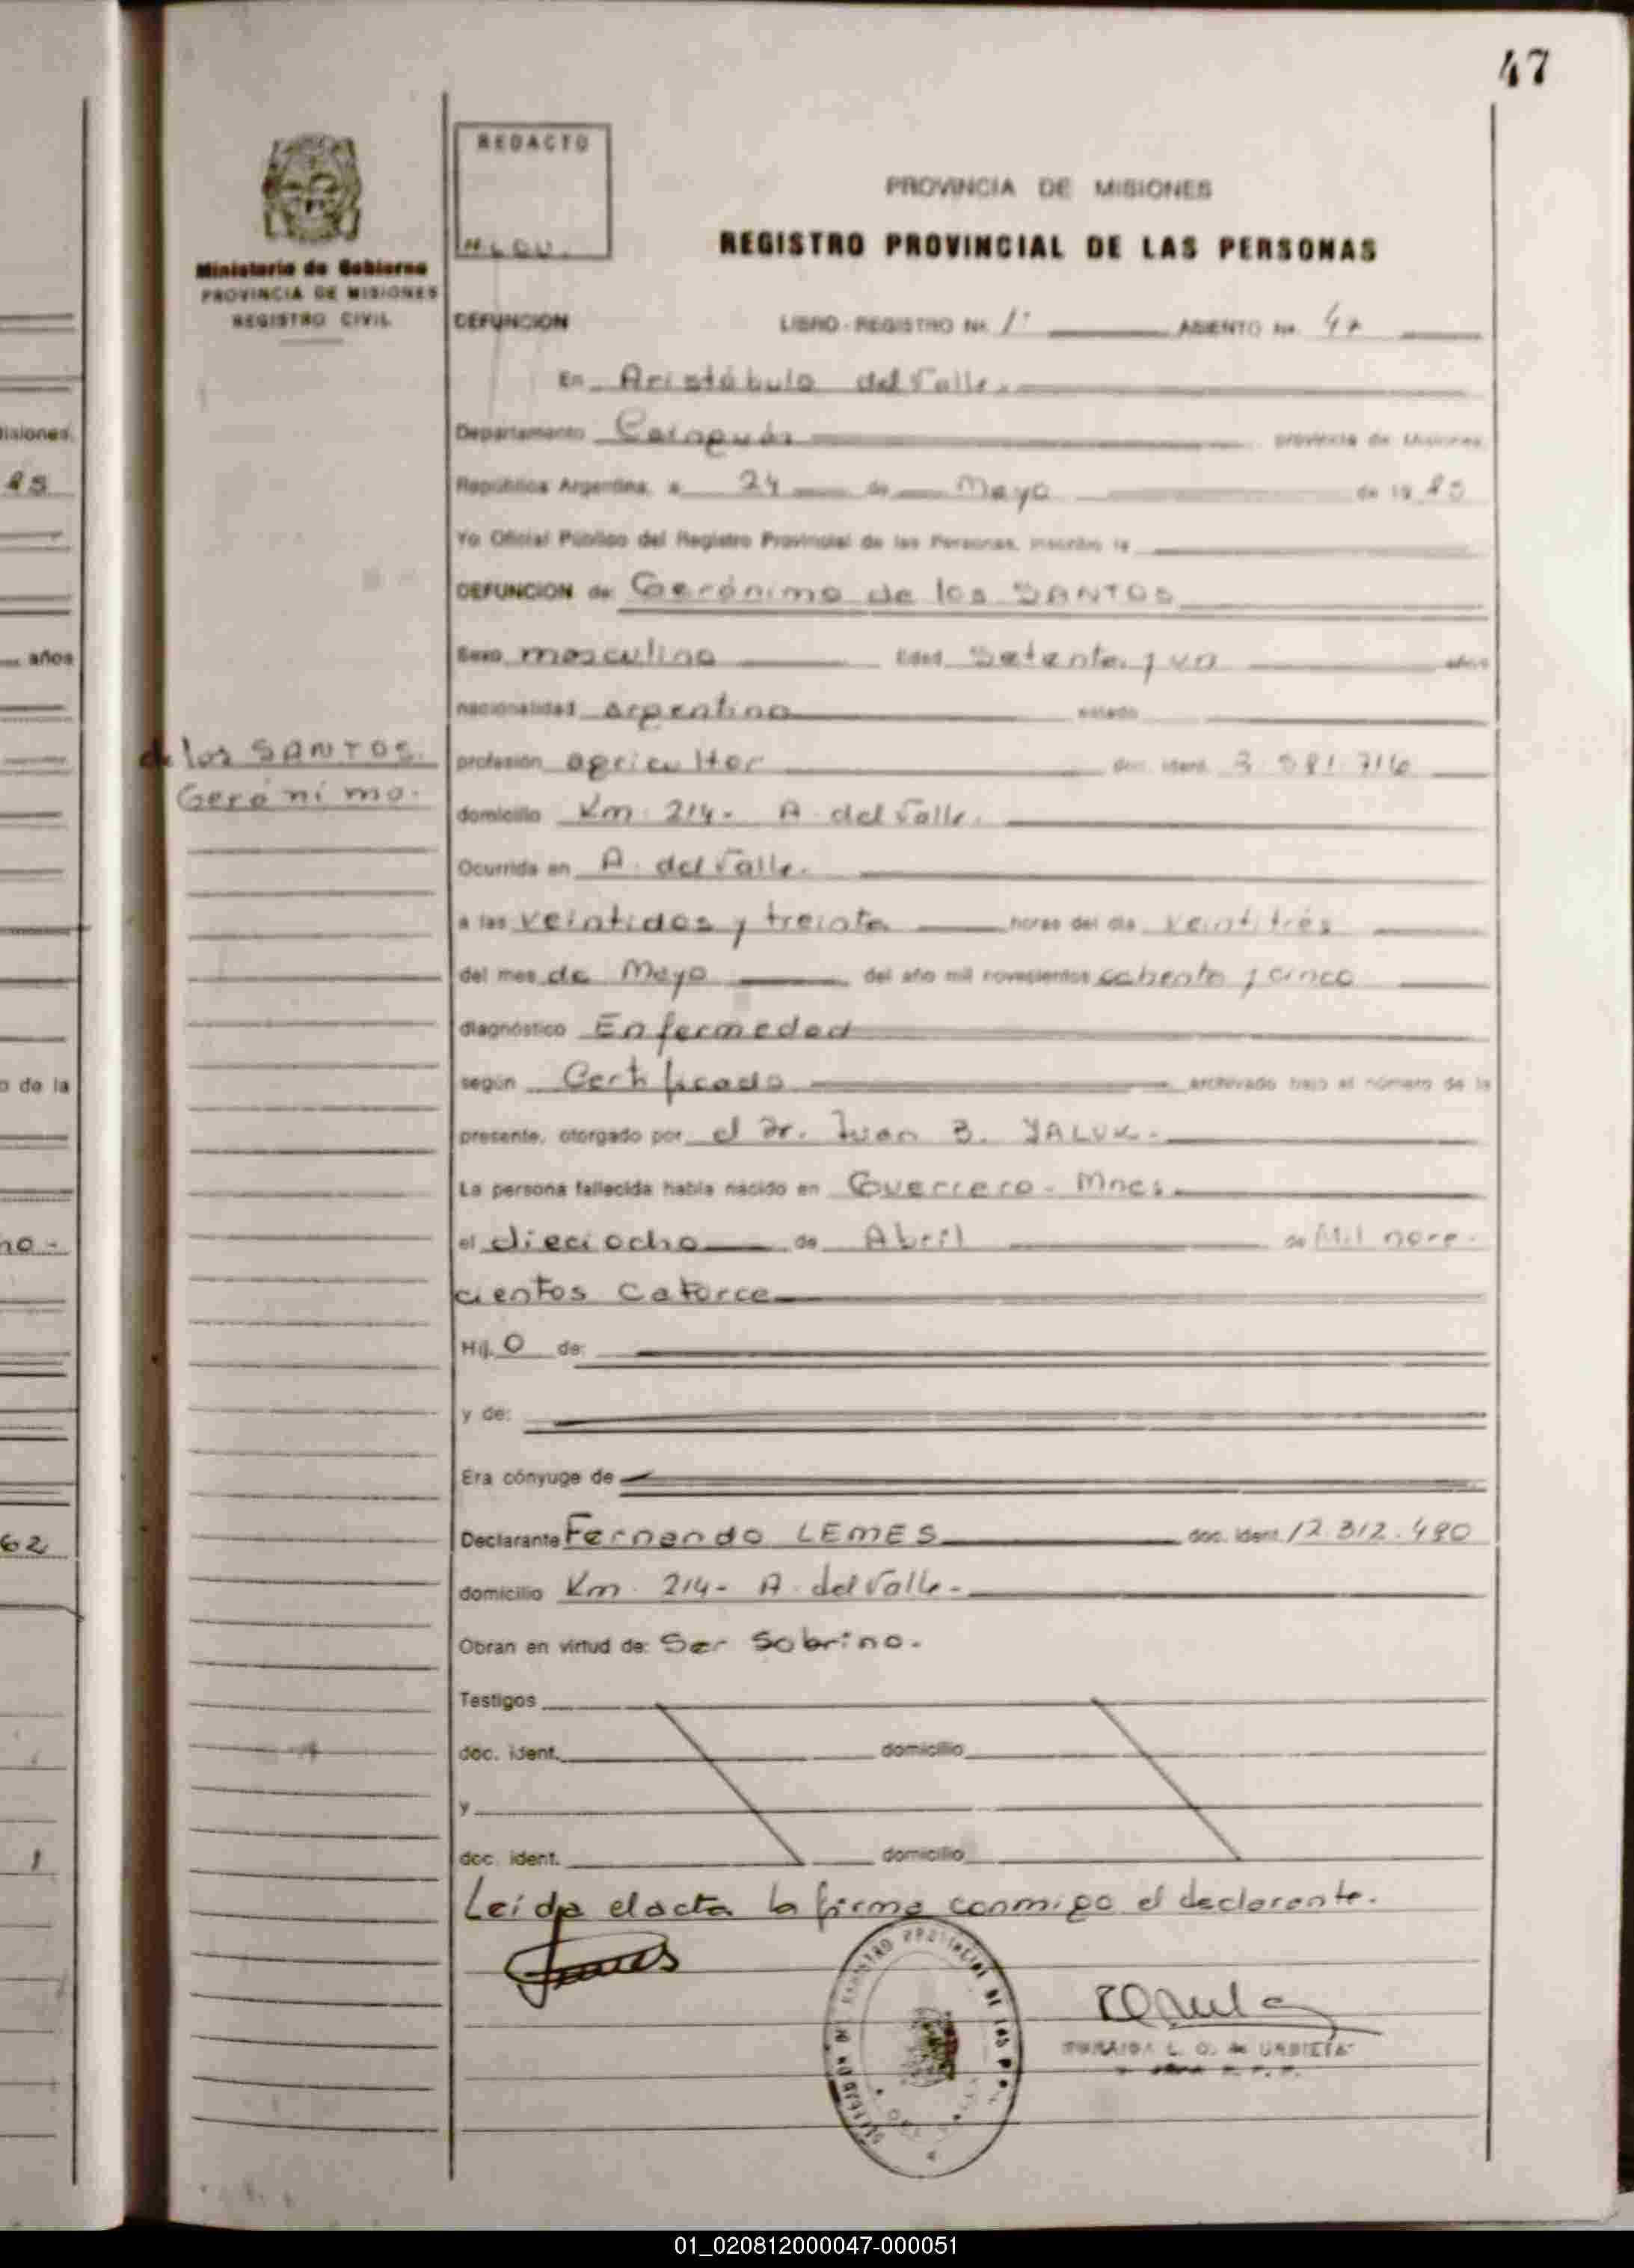 47
REDACTO
PROVINCIA DE MISIONES
REGISTRO PROVINCIAL DE LAS PERSONAS
Ministerio de Gobierno
PROVINCIA DE MISIONES
REGISTRO CIVIL
DEFUNCION LIBRO-REGISTRO Nº. 1º ASIENTO Nº. 47
En Aristóbulo del Valle.
Departamento Cainguás provincia de Misiones,
República Argentina, a 24 de Mayo de 19 85
Yo Oficial Público del Registro Provincial de las Personas, inscribo la
DEFUNCION de: Gerónimo de los SANTOS
Sexo masculino Edad Setenta y un años
nacionalidad argentino estado
de los SANTOS.
Gerónimo.
profesión agricultor doc. ident. 3.581.716
domicilio Km. 214- A. del Valle.
Ocurrida en A. del Valle.
a las veintidos y treinta horas del día veintitrés
del mes de Mayo del año mil novecientos ochenta y cinco
diagnóstico Enfermedad
según Certificado archivado bajo el número de la
presente, otorgado por el Dr. Juan B. YALUK.
La persona fallecida había nacido en Guerrero - Mnes.
el dieciocho de Abril de Mil nove-
cientos Catorce
Hij o de:
y de:
Era cónyuge de
Declarante Fernando LEMES doc. ident. 12.312.480
domicilio Km. 214- A. del Valle-
Obran en virtud de: Ser Sobrino.
Testigos
doc. ident. domicilio
y
doc. ident. domicilio
Leída el acta la firma conmigo el declarante.
REGISTRO PROVINCIAL DE LAS
L. O. de URBIETA
01_020812000047-000051